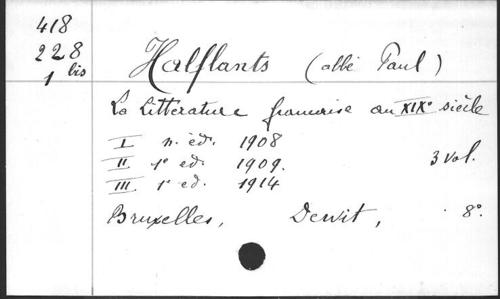 418
228
1 bis
Halflants (abbé Paul)
La Littérature française au XIXe siècle
I n. éd. 1908
II 1e éd. 1909. 3 vol.
III 1e éd. 1914
Bruxelles, Dewit, 8º.